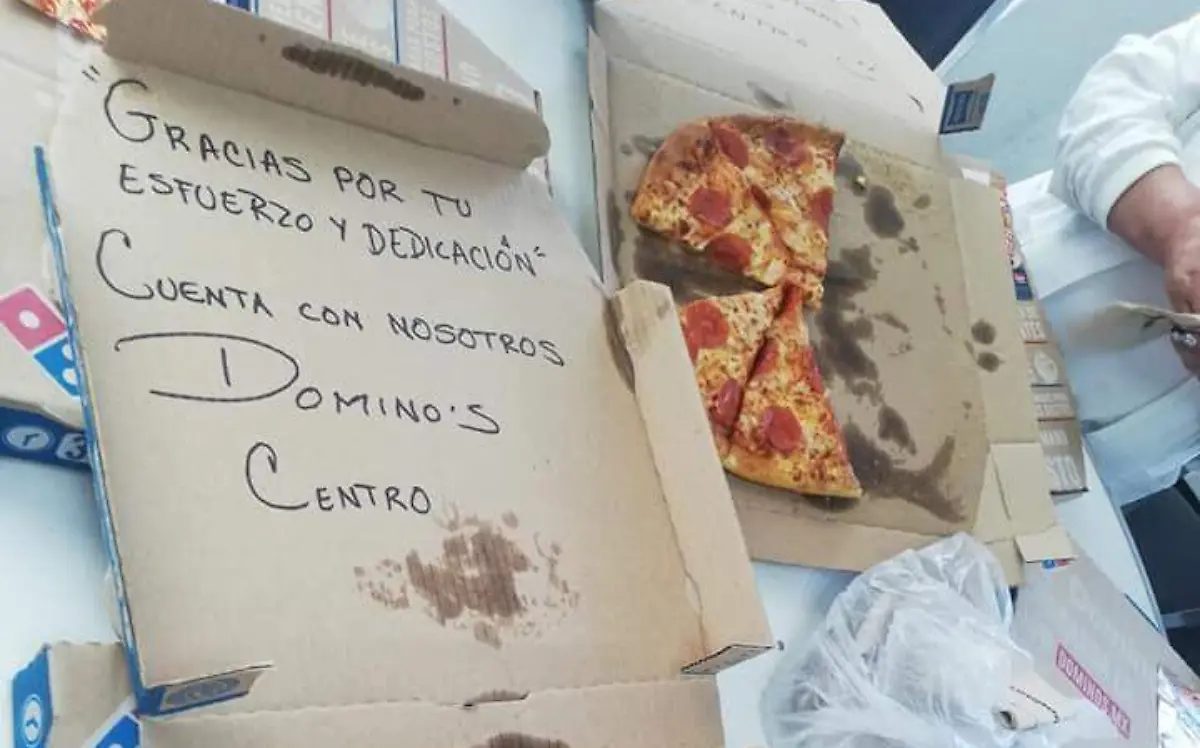 "GRACIAS POR TU
ESFUERZO Y DEDICACIÓN"
CUENTA CON NOSOTROS
DOMINO'S
CENTRO
CENTRO
DOMINOS.MX